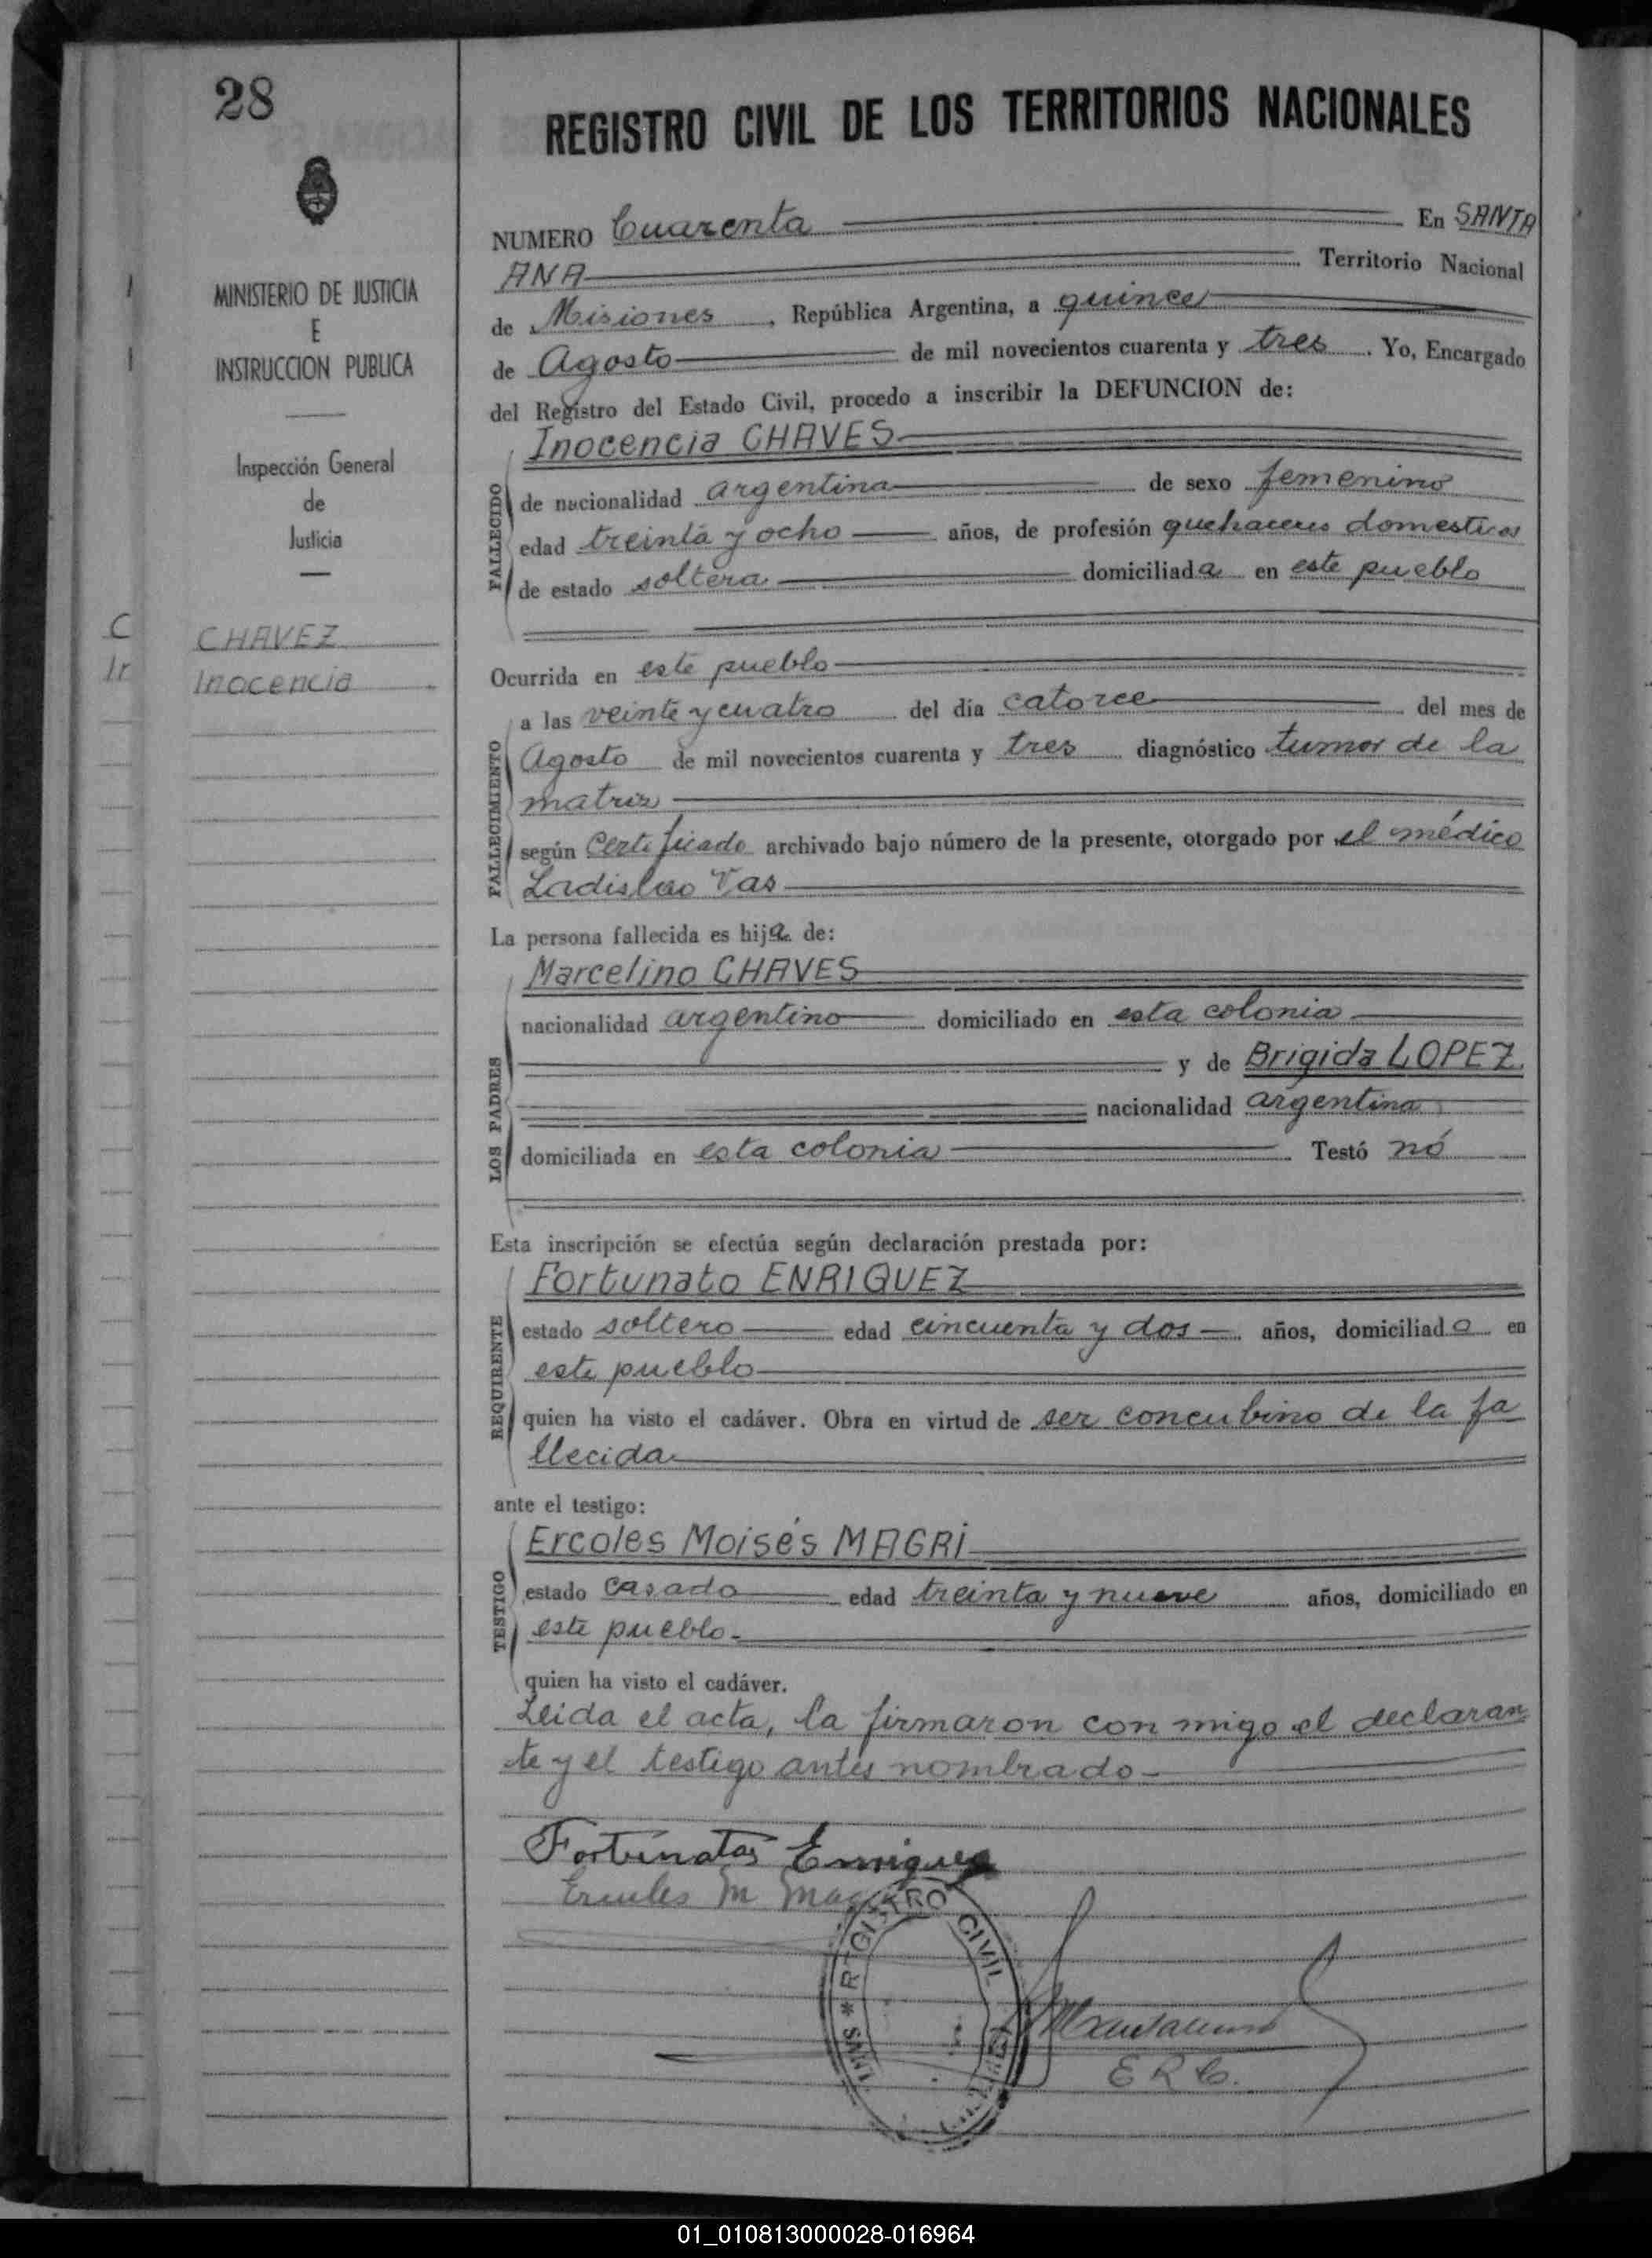 28
MINISTERIO DE JUSTICIA
E
INSTRUCCION PUBLICA
Inspección General
de
Justicia
C
In
CHAVEZ
Inocencia
REGISTRO CIVIL DE LOS TERRITORIOS NACIONALES
NUMERO Cuarenta En SANTA
ANA Territorio Nacional
de Misiones, República Argentina, a quince
de Agosto de mil novecientos cuarenta y tres. Yo, Encargado
del Registro del Estado Civil, procedo a inscribir la DEFUNCION de:
Inocencia CHAVES
FALLECIDO
de nacionalidad argentina de sexo femenino
edad treinta y ocho años, de profesión quehaceres domesticos
de estado soltera domiciliada en este pueblo
Ocurrida en este pueblo
FALLECIMIENTO
a las veinte y cuatro del día catorce del mes de
Agosto de mil novecientos cuarenta y tres diagnóstico tumor de la
matriz
según Certificado archivado bajo número de la presente, otorgado por el médico
Ladislao Vas
La persona fallecida es hija de:
Marcelino CHAVES
LOS PADRES
nacionalidad argentino domiciliado en esta colonia
y de Brigida LOPEZ
nacionalidad argentina
domiciliada en esta colonia Testó nó
Esta inscripción se efectúa según declaración prestada por:
Fortunato ENRIQUEZ
REQUIRENTE
estado soltero edad cincuenta y dos años, domiciliado en
este pueblo
quien ha visto el cadáver. Obra en virtud de ser concubino de la fa
llecida
ante el testigo:
Ercoles Moisés MAGRI
TESTIGO
estado casado edad treinta y nueve años, domiciliado en
este pueblo.
quien ha visto el cadáver.
Leida el acta, la firmaron con migo el declaran
te y el testigo antes nombrado
Fortunato Enriquez
Ercules M Mag
REGISTRO CIVIL
E R C.
01_010813000028-016964